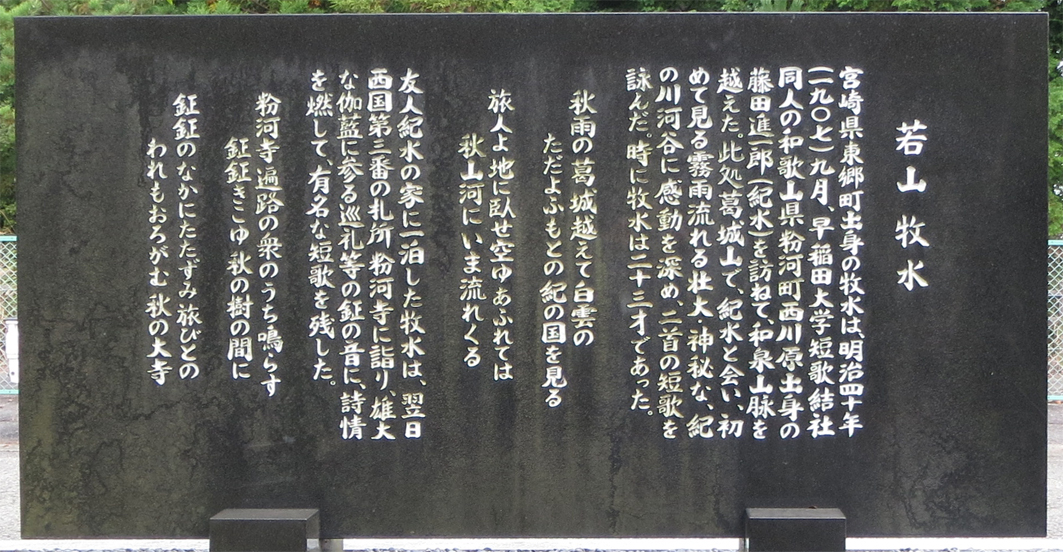 若山 牧水
宮崎県東郷町出身の牧水は、明治四十年
(一九〇七)九月、早稲田大学短歌結社
同人の和歌山県粉河町西川原出身の
藤田進一郎(紀水)を訪ねて和泉山脉を
越えた。此処葛城山で、紀水と会い、初
めて見る霧雨流れる壮大神秘な、紀
の川河谷に感動を深め、二首の短歌を
詠んだ。時に牧水は二十三才であった。
秋雨の葛城越えて白雲の
ただよふもとの紀の国を見る
旅人よ地に臥せ空ゆあふれては
秋山河にいま流れくる
友人紀水の家に一泊した牧水は、翌日
西国第三番の札所粉河寺に詣り、雄大
な伽藍に参る巡礼等の鉦の音に、詩情
を燃して、有名な短歌を残した。
粉河寺遍路の衆のうち鳴らす
鉦鉦きこゆ秋の樹の間に
鉦鉦のなかにたたずみ旅びとの
われもおろがむ秋の大寺